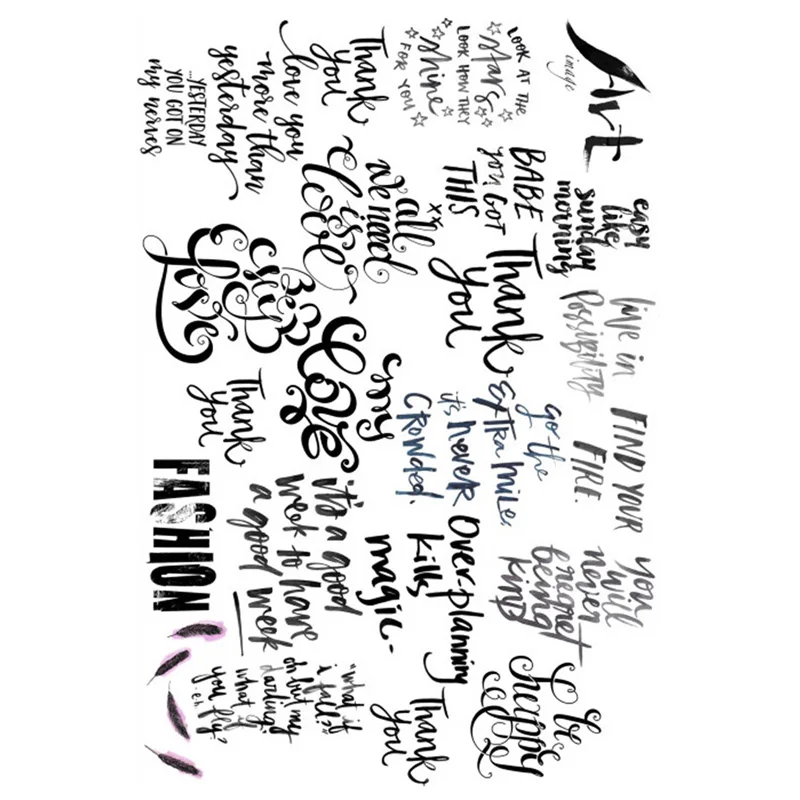 Art
image
easy
like
sunday
morning
live in
possibility
FIND YOUR
FIRE.
you
will
never
regret
being
kind
be
happy
LOOK AT THE
stars
LOOK HOW THEY
shine
FOR YOU
BABE
you GOT
THIS
xx
Thank
you
go the
extra mile.
it's never
crowded.
Over-planning
kills
magic.
Thank
you
Thank
you
all
we need
is
love
my
Love
it's a good
week to have
a good week
"what if
i fall?"
oh but my
darling,
what if
you fly?
-eh
love you
more than
yesterday
...YESTERDAY
YOU GOT ON
my nerves
love
Thank
you
FASHION